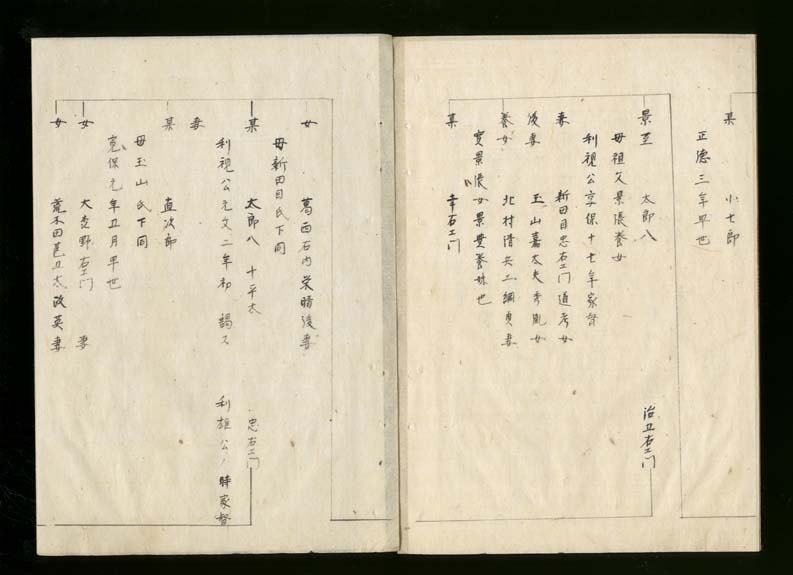 某 小七郎
正徳三年早世
景至 太郎八 治五右エ門
母祖父景慶養女
利視公享保十七年家督
妻 新田目忠右エ門道考女
後妻 玉山嘉太夫秀胤女
養女 北村清兵二綱貞妻
実景慶女景豊養妹也
某 幸右エ門
女 葛西右内栄晴後妻
母新田目氏下同
某 太郎八 十平太 忠右エ門
利視公元文二年初謁ス 利雄公ノ時家督
妻
某 直次郎
母玉山氏下同
寛保元年五月早世
女 野右エ門 妻
女 荒木田 五太 政英妻